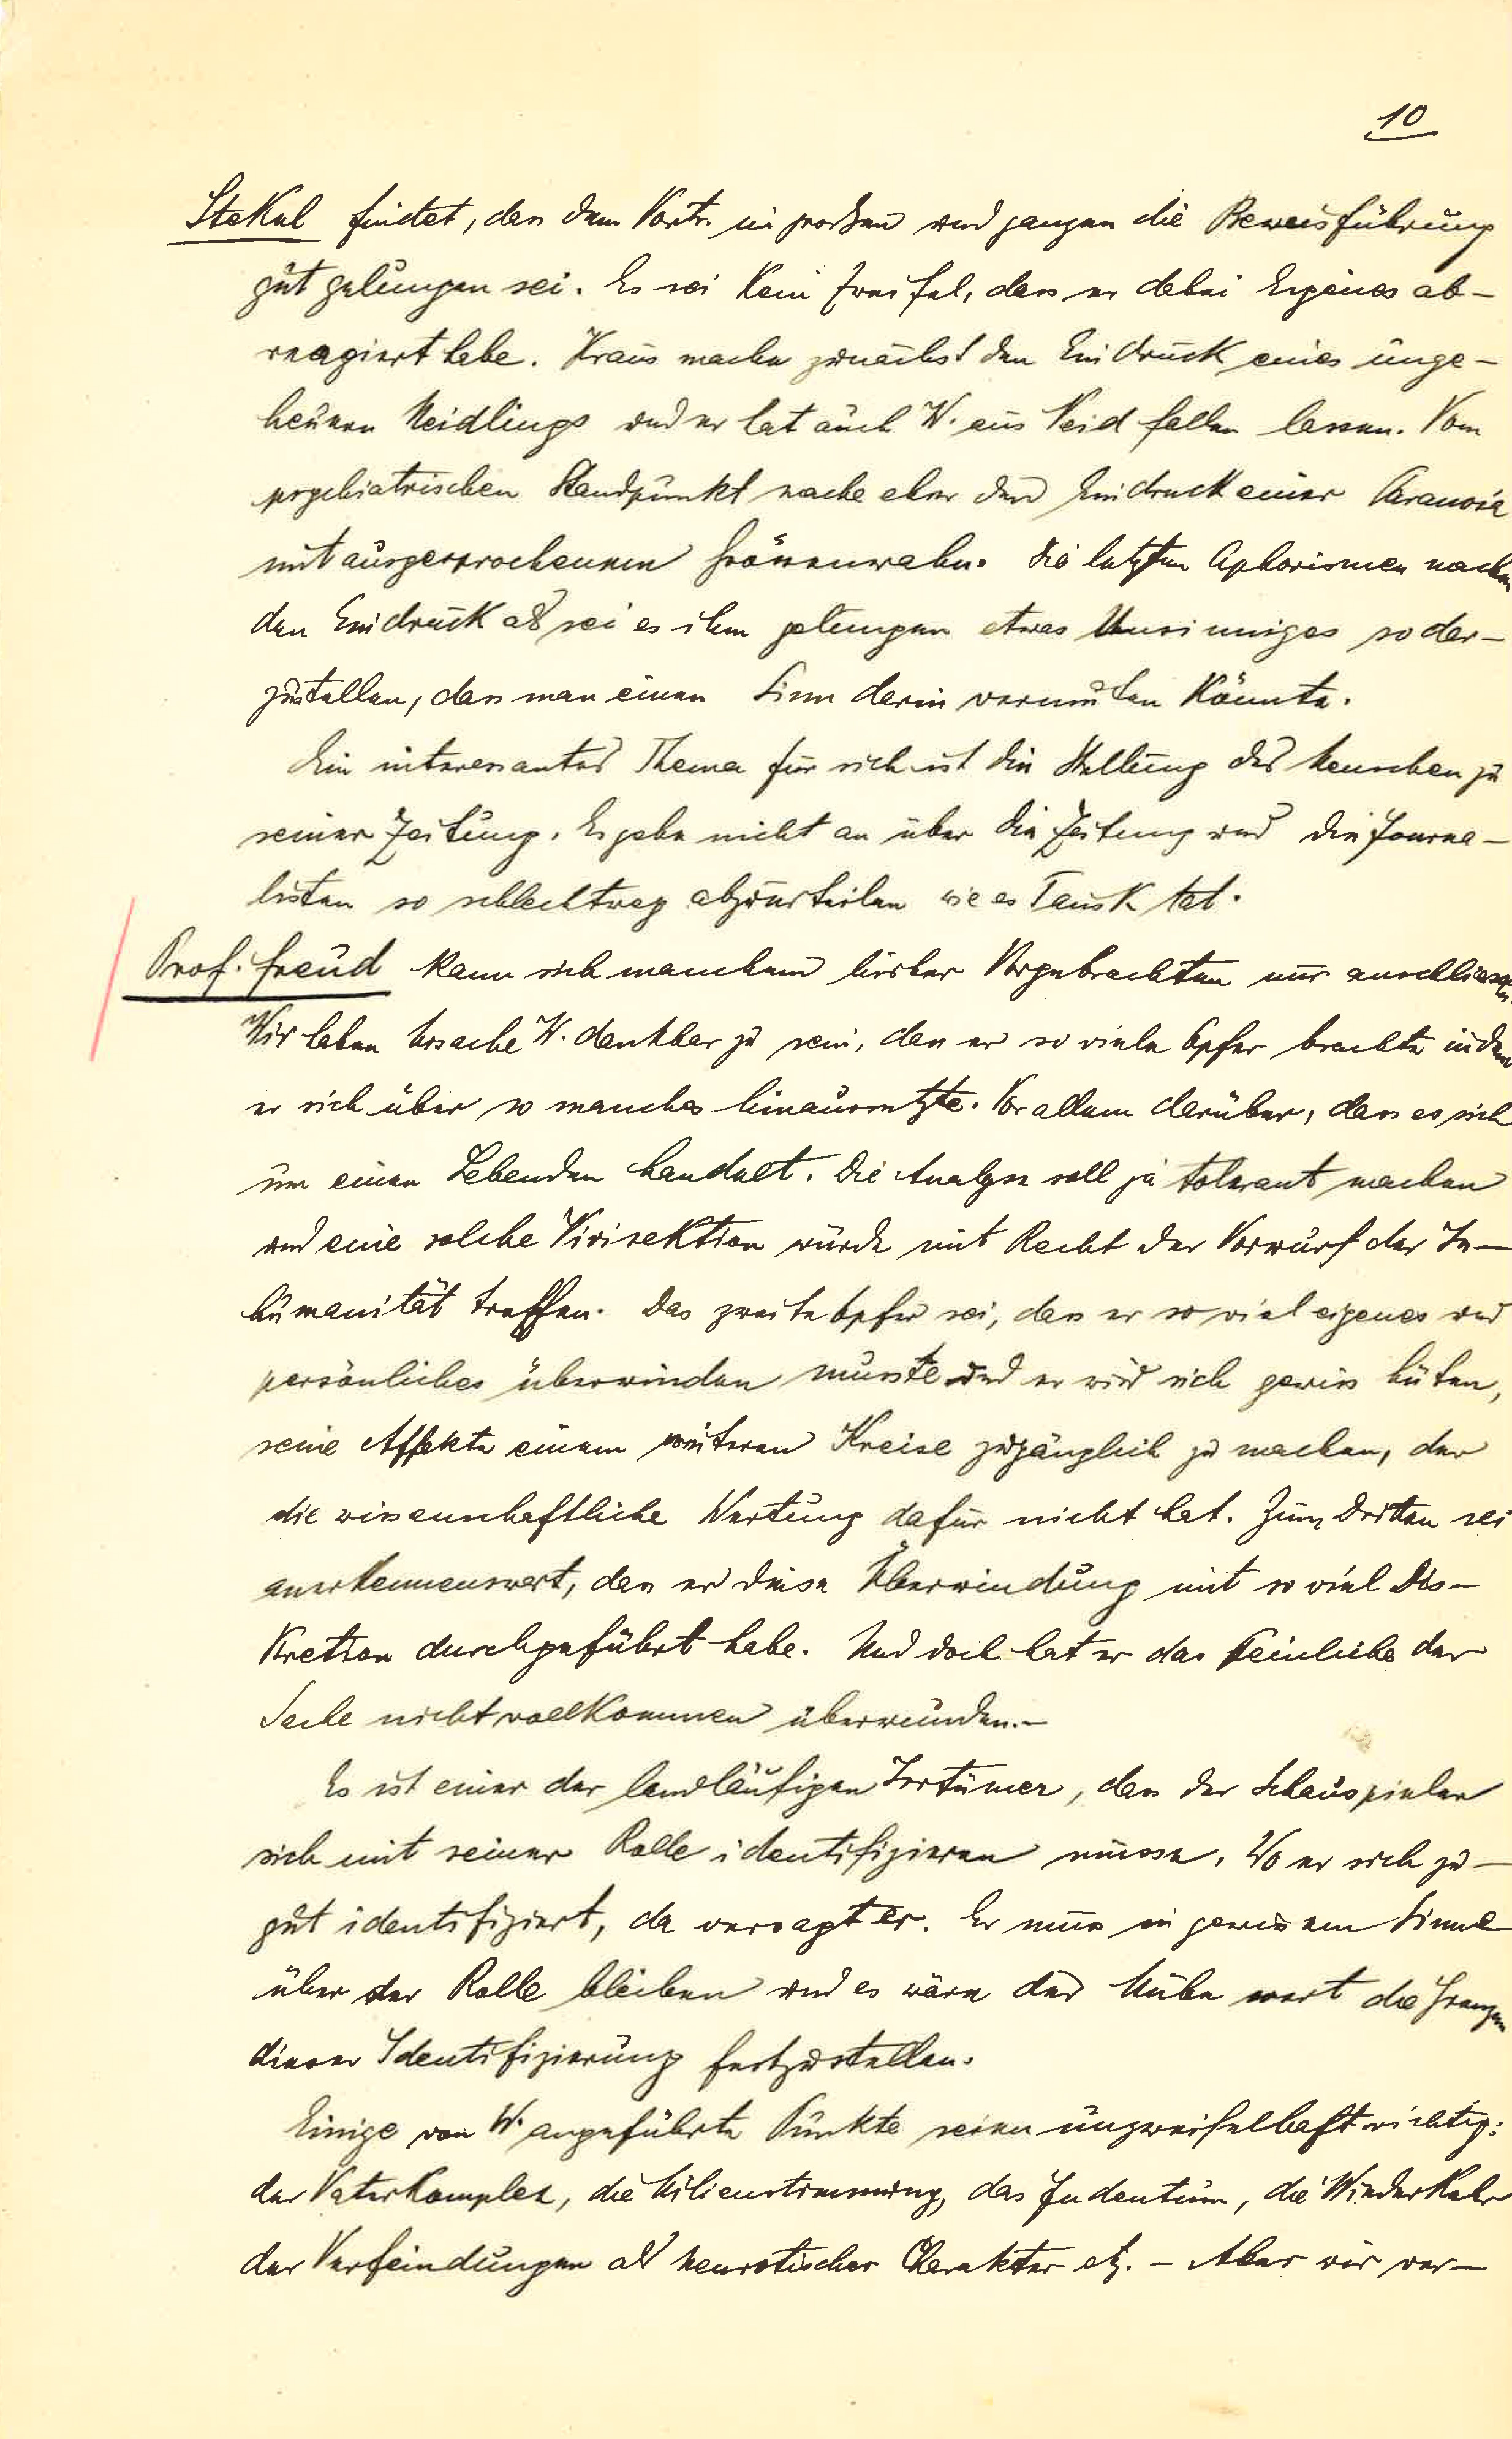 10
Stekel findet, dass dem Vortr. im großen und ganzen die Beweisführung
gut gelungen sei. Es sei kein Zweifel, dass er dabei Eigenes ab-
reagiert habe. Kraus mache zunächst den Eindruck eines unge-
heuren Neidlings und er hat auch W. aus Neid fallen lassen. Vom
psychiatrischen Standpunkt mache eher den Eindruck einer Paranoia
mit ausgesprochenem Grössenwahn. Die letzten Aphorismen machen
den Eindruck als sei es ihm gelungen etwas Unsinniges so dar-
zustellen, dass man einen Sinn darin vermuten könnte.
Ein interessantes Thema für sich ist die Stellung des Menschen zu
seiner Zeitung. Es gehe nicht an über die Zeitung und die Journa-
listen so schlechtweg abzuurteilen wie es Tausk tat.
Prof. Freud kann sich manchem bisher Vorgebrachten nur anschliessen.
Wir haben Ursache W. dankbar zu sein, dass er so viele Opfer brachte indem
er sich über so manches hinaussetzte. Vor allem darüber, dass es sich
um einen Lebenden handelt. Die Analyse soll ja tolerant machen
und eine solche Vivisektion würde mit Recht der Vorwurf der In-
humanität treffen. Das zweite Opfer sei, dass er so viel eigenes und
persönliches überwinden musste und er wird sich gewiss hüten,
seine Affekte einem weiteren Kreise zugänglich zu machen, der
die wissenschaftliche Wertung dafür nicht hat. Zum Dritten sei
anerkennenswert, dass er diese Überwindung mit so viel Dis-
kretion durchgeführt habe. Und doch hat er das Peinliche der
Sache nicht vollkommen überwunden.-
Es ist einer der landläufigen Irrtümer, dass der Schauspieler
sich mit seiner Rolle identifizieren müsse. Wo er sich zu-
gut identifiziert, da versagt er. Er muss in gewissem Sinne
über der Rolle bleiben und es wäre der Mühe wert die Grenzen
dieser Identifizierung festzustellen.
Einige von W. angeführte Punkte seien unzweifelhaft wichtig:
der Vaterkomplex, die Milieustimmung, das Judentum, die Wiederkehr
der Verfeindungen als neurotischer Charakter etz. - Aber wir ver-